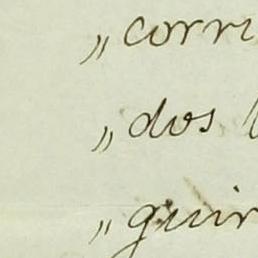 „corri
„dos l
„guir